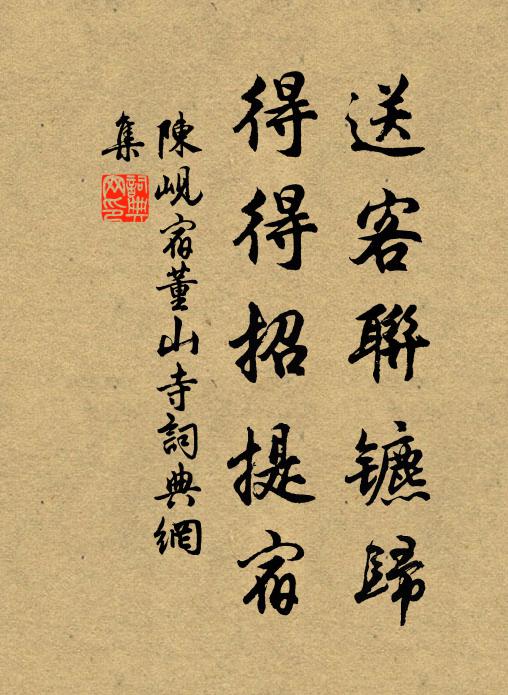 送客聯镳歸
得得招提宿
陳峴宿董山寺詞典網
集
詞典網印